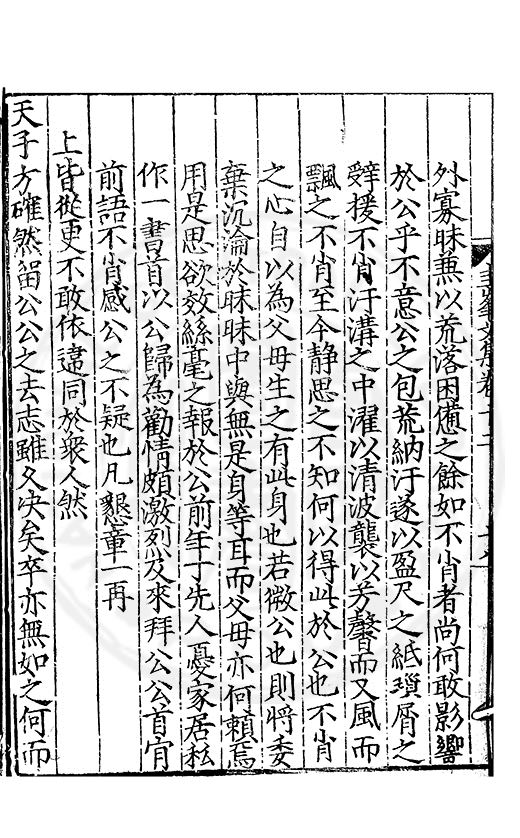 外寡昧兼以荒落困憊之餘如不肖者尚何敢影響
於公乎不意公之包荒納汙遂以盈尺之紙瑣屑之
辭援不肖汙溝之中濯以清波襲以芳馨而又風而
飄之不肖至今静思之不知何以得此於公也不肖
之心自以為父母生之有此身也若微公也則將委
棄沉淪於昧昧中與無是身等耳而父母亦何賴焉
用是思欲效絲毫之報於公前年丁先人憂家居私
作一書首以公歸為勸情頗激烈及來拜公公首肯
前語不肖感公之不疑也凡懇章一再
上皆從更不敢依違同於衆人然
天子方確然留公公之去志雖久决矣卒亦無如之何而